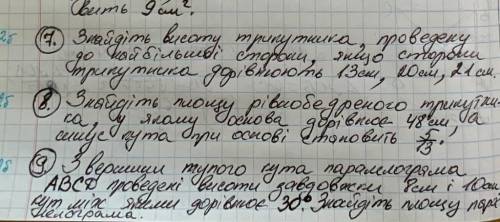 вить 9 см².
2б 7. Знайдіть висоту трикутника, проведену
до найбільшої сторони, якщо сторони
трикутника дорівнюють 13см, 20см, 21см.
2б 8. Знайдіть площу рівнобедреного трикутни-
ка, у якому основа дорівнює 48 см, а
синус кута при основі становить 5/13.
9. З вершини тупого кута паралелограма
ABCD проведені висоти завдовжки 8см і 10см
кут між якими дорівнює 30°. Знайдіть площу пара-
лелограма.